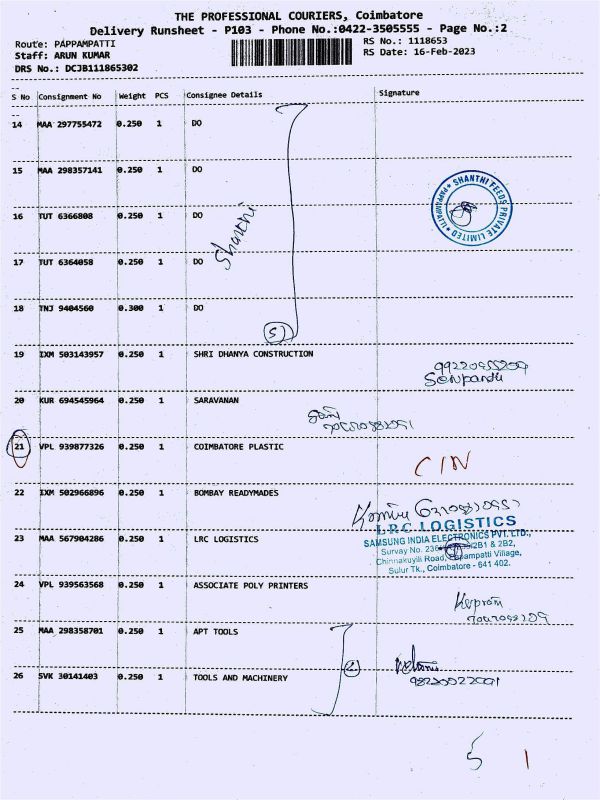 THE PROFESSIONAL COURIERS, Coimbatore
Delivery Runsheet - P103 - Phone No.:0422-3505555 - Page No.:2
Route: PAPPAMPATTI
RS No.: 1118653
Staff: ARUN KUMAR
RS Date: 16-Feb-2023
DRS No.: DCJB111865302
S No Consignment No Weight PCS Consignee Details Signature
14 MAA 297755472 0.250 1 DO
15 MAA 298357141 0.250 1 DO
SHANTHI FEEDS PRIVATE LIMITED
PAPPAMPATTI
16 TUT 6366808 0.250 1 DO
Shanthi
17 TUT 6364058 0.250 1 DO
18 TNJ 9404560 0.300 1 DO
5
19 IXM 503143957 0.250 1 SHRI DHANYA CONSTRUCTION
20 KUR 694545964 0.250 1 SARAVANAN
21 VPL 939877326 0.250 1 COIMBATORE PLASTIC
C/N
22 IXM 502966896 0.250 1 BOMBAY READYMADES
23 MAA 567904286 0.250 1 LRC LOGISTICS
LRC LOGISTICS
SAMSUNG INDIA ELECTRONICS PVT. LTD.,
Survay No. 2B1 & 2B2,
Chinnakuyili Road, Pappampatti Village,
Sulur Tk., Coimbatore - 641 402.
24 VPL 939563568 0.250 1 ASSOCIATE POLY PRINTERS
25 MAA 298358701 0.250 1 APT TOOLS
2
26 SVK 30141403 0.250 1 TOOLS AND MACHINERY